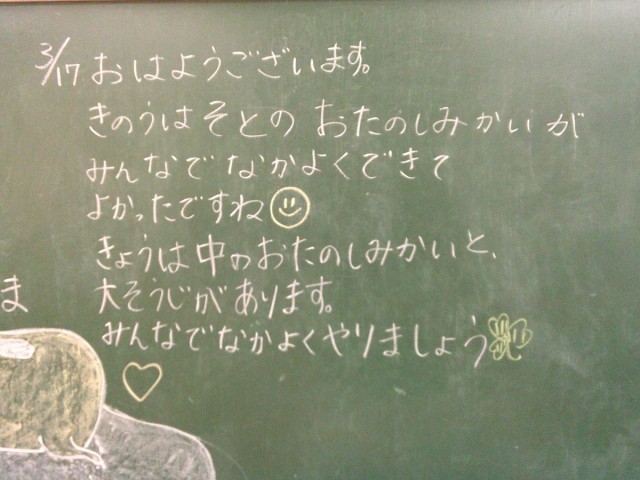 3/17 おはようございます。
きのうはそとの おたのしみかいが
みんなでなかよくできて
よかったですね
きょうは中のおたのしみかいと、
ま
大そうじがあります。
みんなでなかよくやりましょう